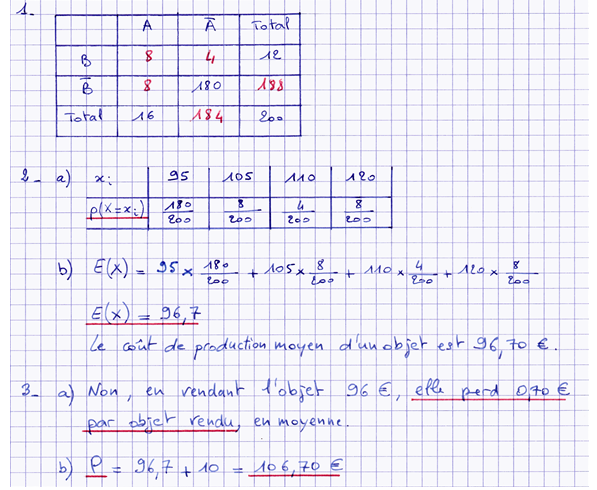 1.
A A̅ Total
B 8 4 12
B̅ 8 180 188
Total 16 184 200
2- a) xᵢ 95 105 110 120
p(X=xᵢ) 180/200 8/200 4/200 8/200
b) E(X) = 95 × 180/200 + 105 × 8/200 + 110 × 4/200 + 120 × 8/200
E(X) = 96,7
Le coût de production moyen d'un objet est 96,70 €.
3- a) Non, en rendant l'objet 96 €, elle perd 0,70 €
par objet rendu, en moyenne.
b) P = 96,7 + 10 = 106,70 €